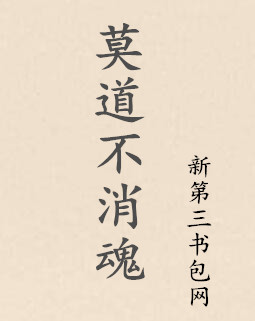 莫道不消魂
新第三书包网